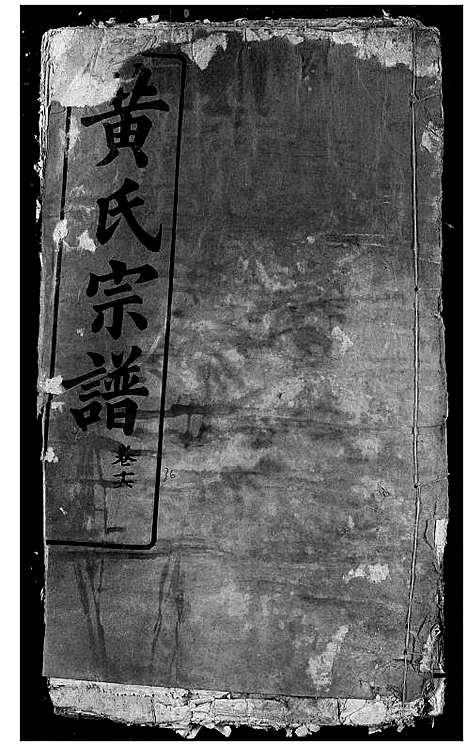 黄氏宗譜
卷十六